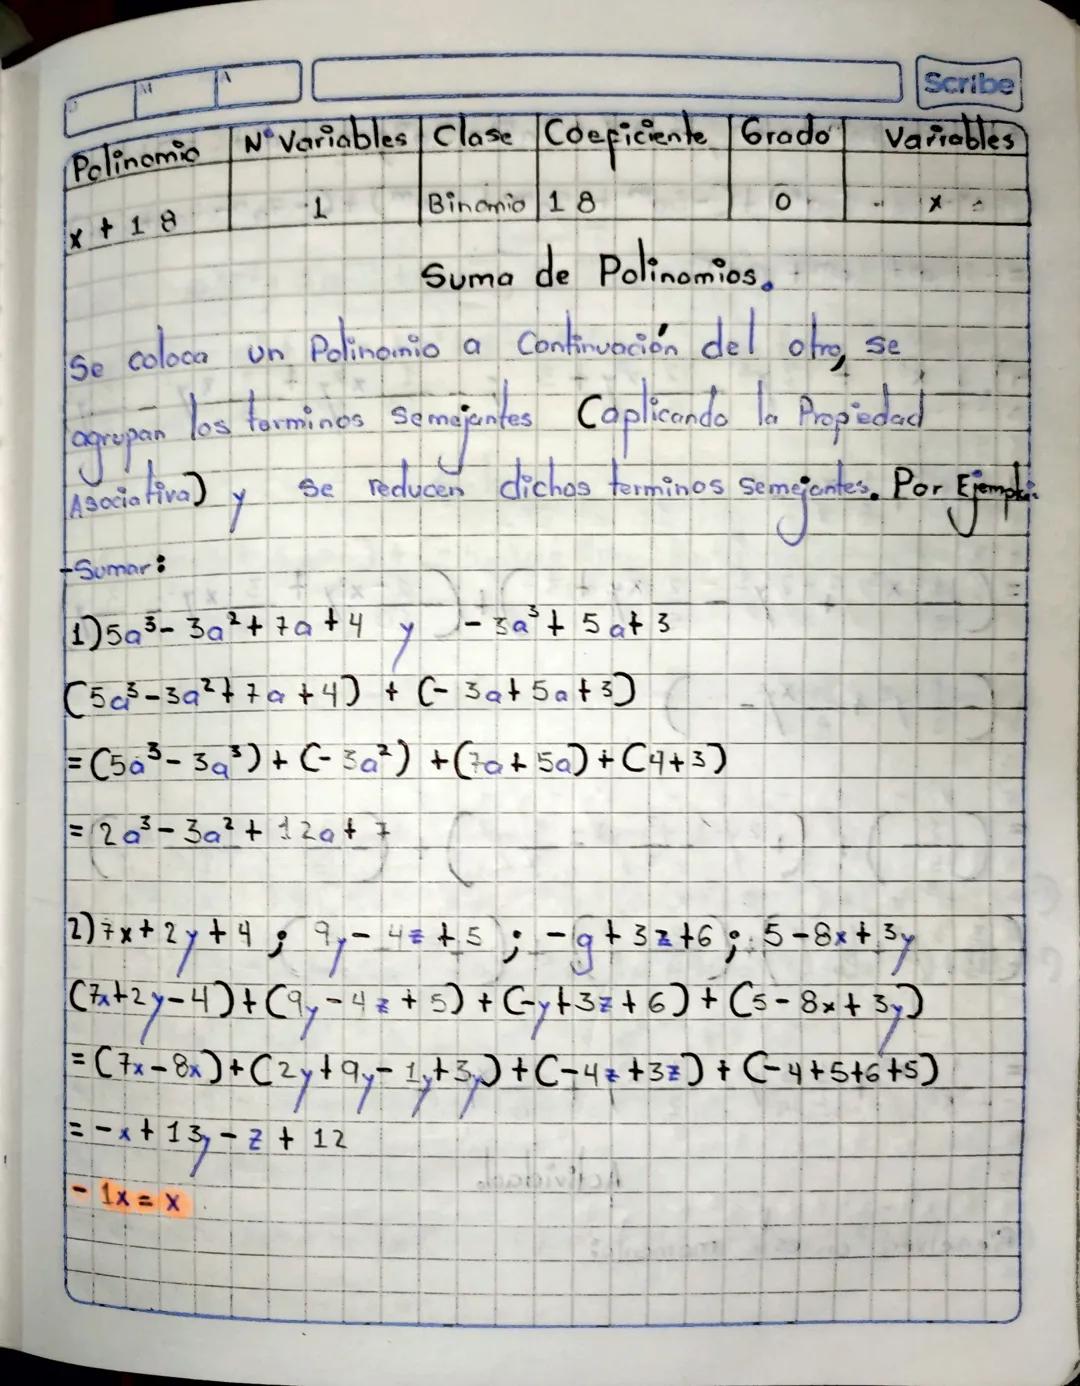 D M A Scribe
Polinomio N° Variables Clase Coeficiente Grado Variables
x + 18 1 Binomio 18 0 x
Suma de Polinomios.
Se coloca un Polinomio a Continuación del otro, se
agrupan los terminos Semejantes (aplicando la Propiedad
Asociativa) y se reducen dichos terminos semejantes. Por Ejemplo:
-Sumar:
1) 5a³- 3a²+ 7a + 4 y - 3a³+ 5a+ 3
(5a³-3a²+7a+4) + (- 3a+5a+3)
= (5a³- 3a³) + (-3a²) + (7a+ 5a) + (4+3)
= 2a³- 3a² + 12a + 7
2) 7x+ 2y + 4 ; 9y- 4z + 5 ; - g + 3z+6 ; 5-8x+ 3y
(7x+2y-4)+(9y-4z+5) + (-y+3z+6) + (5-8x+3y)
= (7x-8x)+(2y+9y-1y+3y)+(-4z+3z)+(-4+5+6+5)
= -x+ 13y - z + 12
- 1x = x